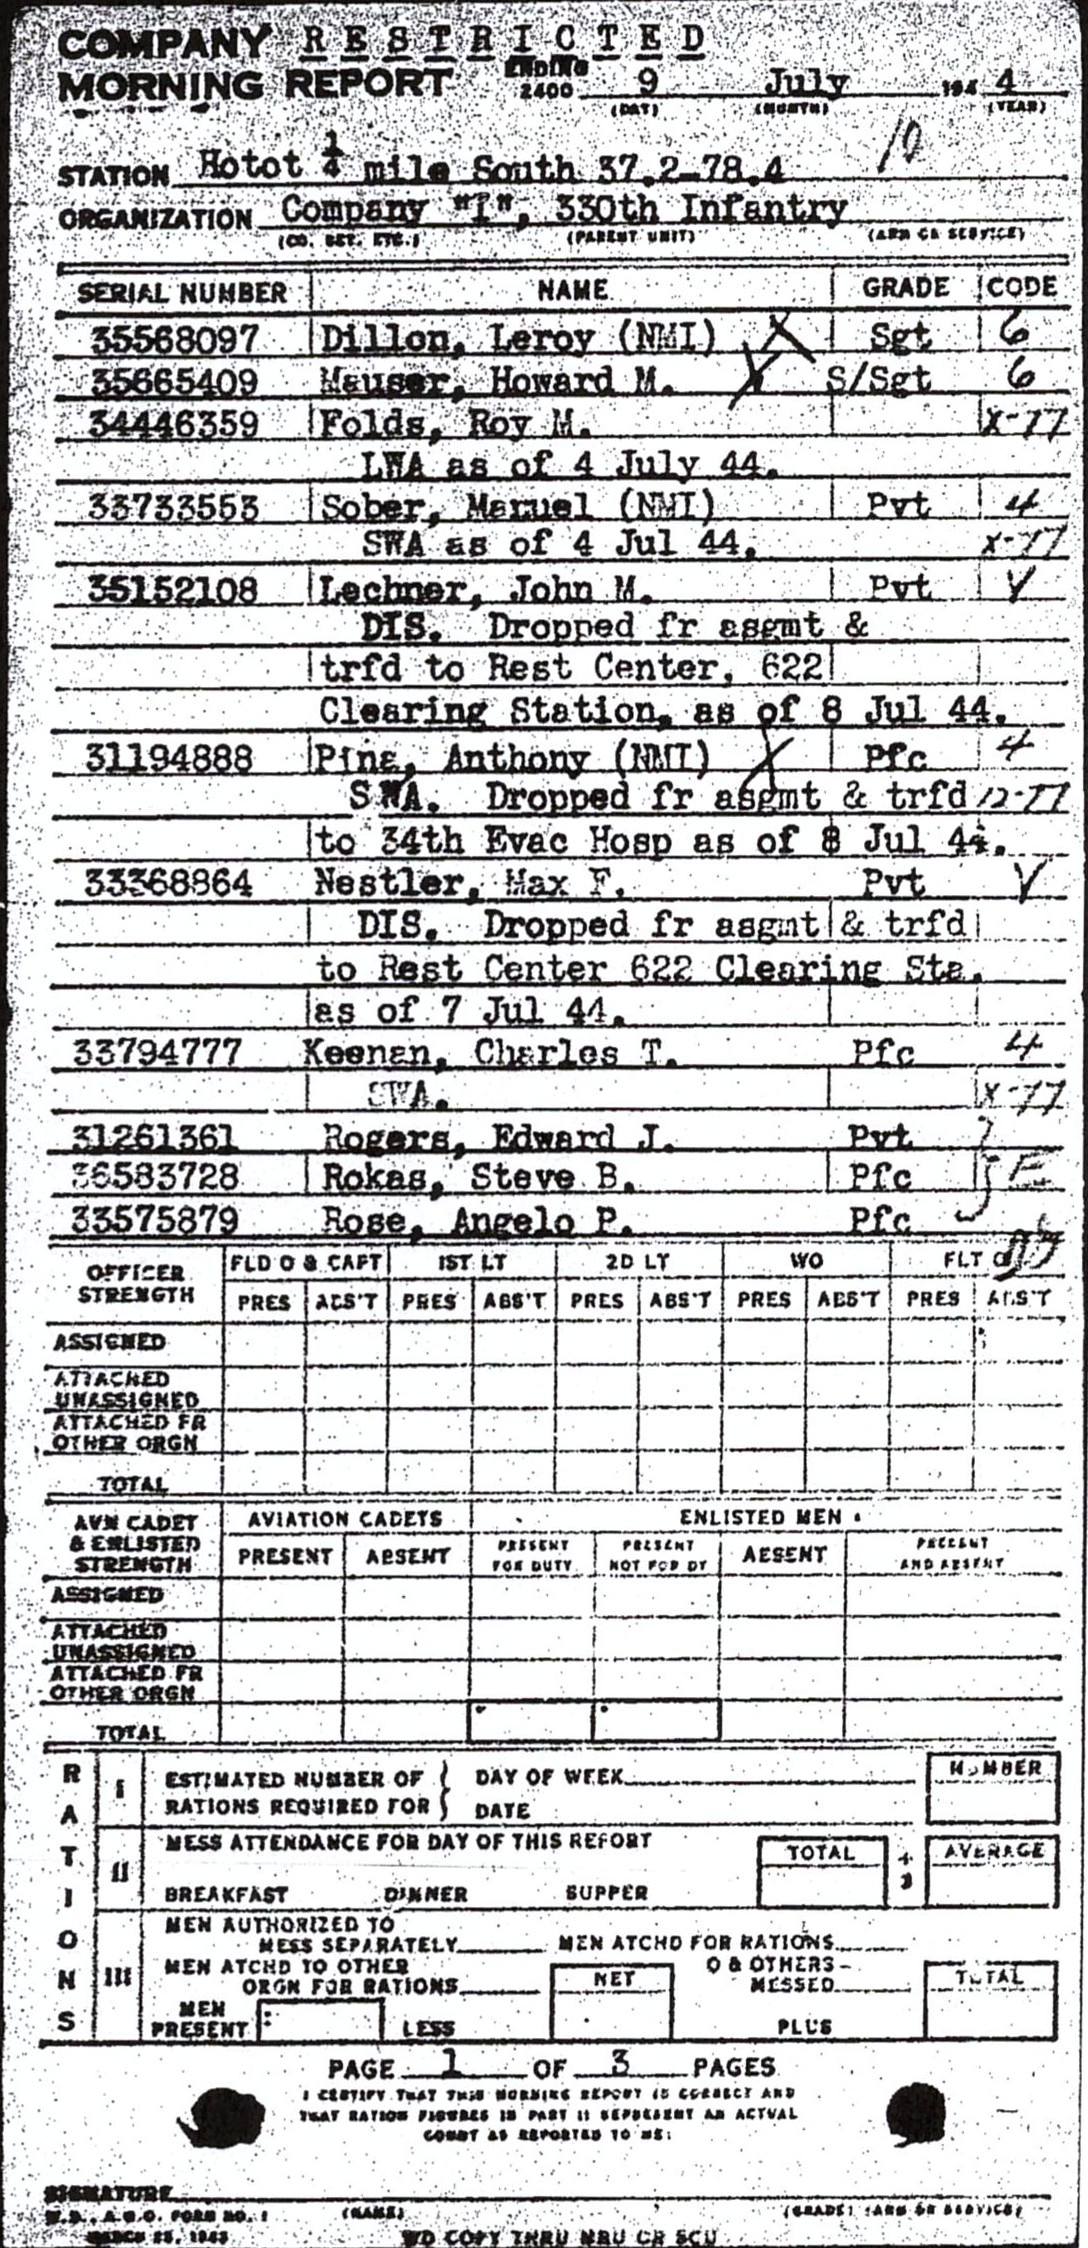 COMPANY RESTRICTED
MORNING REPORT ENDING 2400 9 July 194 4
(DAY) (MONTH) (YEAR)
10
STATION Hotot 1/4 mile South 37.2-78.4
ORGANIZATION Company "I", 330th Infantry
(CO. DET. ETC.) (PARENT UNIT) (ARM OR SERVICE)
SERIAL NUMBER NAME GRADE CODE
35568097 Dillon, Leroy (NMI) X Sgt 6
35665409 Mauser, Howard M. X S/Sgt 6
34446359 Folds, Roy M. X-77
LWA as of 4 July 44.
33733553 Sober, Manuel (NMI) Pvt 4
SWA as of 4 Jul 44. X-77
35152108 Lechner, John M. Pvt V
DIS. Dropped fr asgmt &
trfd to Rest Center, 622
Clearing Station, as of 8 Jul 44.
31194888 Pina, Anthony (NMI) X Pfc 4
SWA. Dropped fr asgmt & trfd 12-77
to 34th Evac Hosp as of 8 Jul 44.
33368864 Nestler, Max F. Pvt V
DIS. Dropped fr asgmt & trfd
to Rest Center 622 Clearing Sta.
as of 7 Jul 44.
33794777 Keenan, Charles T. Pfc 4
SWA. X-77
31261361 Rogers, Edward J. Pvt
36583728 Rokas, Steve B. Pfc E
33575879 Rose, Angelo P. Pfc
OFFICER STRENGTH FLD O & CAPT 1ST LT 2D LT WO FLT O
PRES ABS'T PRES ABS'T PRES ABS'T PRES ABS'T PRES ABS'T
ASSIGNED
ATTACHED
UNASSIGNED
ATTACHED FR
OTHER ORGN
TOTAL
AVN CADET & ENLISTED STRENGTH AVIATION CADETS ENLISTED MEN
PRESENT ABSENT PRESENT FOR DUTY PRESENT NOT FOR DY ABSENT PRESENT AND ABSENT
ASSIGNED
ATTACHED
UNASSIGNED
ATTACHED FR
OTHER ORGN
TOTAL
RATIONS
I ESTIMATED NUMBER OF RATIONS REQUIRED FOR DAY OF WEEK NUMBER
DATE
II MESS ATTENDANCE FOR DAY OF THIS REPORT TOTAL ÷ 3 AVERAGE
BREAKFAST DINNER SUPPER
III MEN AUTHORIZED TO
MESS SEPARATELY MEN ATCHD FOR RATIONS
MEN ATCHD TO OTHER
ORGN FOR RATIONS NET O & OTHERS MESSED TOTAL
MEN PRESENT LESS PLUS
PAGE 1 OF 3 PAGES
I CERTIFY THAT THIS MORNING REPORT IS CORRECT AND
THAT RATION FIGURES IN PART II REPRESENT AN ACTUAL
COUNT AS REPORTED TO ME:
SIGNATURE
(NAME) (GRADE) (ARM OR SERVICE)
W.D., A.G.O. FORM NO. 1
MARCH 25, 1943
WD COPY THRU MRU OR SCU